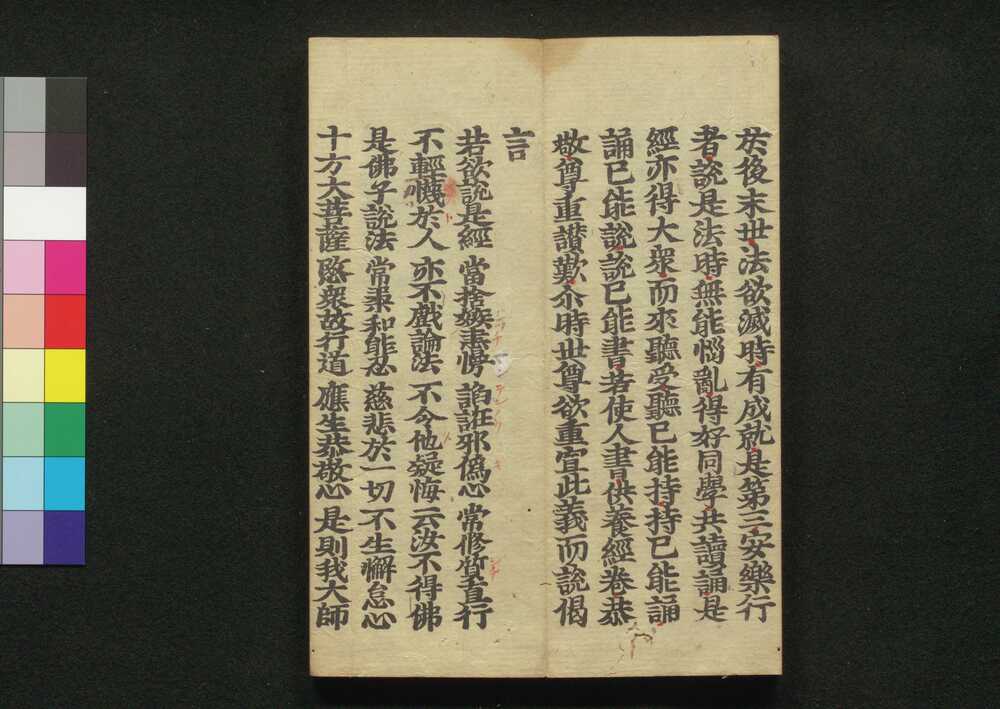 於後末世法欲滅時有成就是第三安樂行
者說是法時無能惱亂得好同學共讀誦是
經亦得大衆而來聽受聽已能持持已能誦
誦已能說說已能書若使人書供養經卷恭
敬尊重讃歎尒時世尊欲重宣此義而說偈
言
若欲說是經 當捨嫉恚慢 諂誑邪僞心 常修質直行
不輕懱於人 亦不戲論法 不令他疑悔 云汝不得佛
是佛子說法 常柔和能忍 慈悲於一切 不生懈怠心
十方大菩薩 愍衆故行道 應生恭敬心 是則我大師